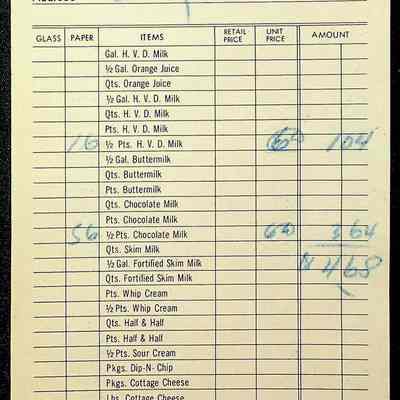 GLASS PAPER ITEMS RETAIL PRICE UNIT PRICE AMOUNT
Gal. H. V. D. Milk
½ Gal. Orange Juice
Qts. Orange Juice
½ Gal. H. V. D. Milk
Qts. H. V. D. Milk
Pts. H. V. D. Milk
16 ½ Pts. H. V. D. Milk 6½ 104
½ Gal. Buttermilk
Qts. Buttermilk
Qts. Chocolate Milk
Pts. Chocolate Milk
56 ½ Pts. Chocolate Milk 6½ 364
Qts. Skim Milk $468
½ Gal. Fortified Skim Milk
Qts. Fortified Skim Milk
Pts. Whip Cream
½ Pts. Whip Cream
Qts. Half & Half
Pts. Half & Half
½ Pts. Sour Cream
Pkgs. Dip-N- Chip
Pkgs. Cottage Cheese
Lbs. Cottage Cheese